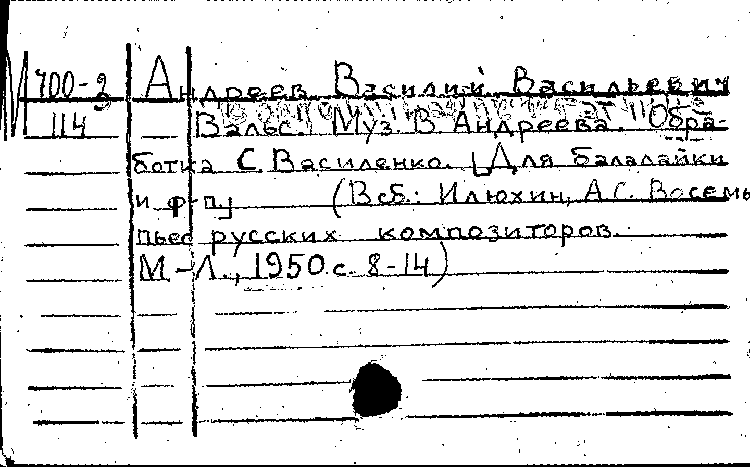 М 700-2 Андреев Василий Васильевич
114 Вальс. Муз. В Андреева. Обра-
ботка С. Василенко. [Для балалайки
и ф-п] (В сб.: Илюхин, А.С. Восемь
пьес русских композиторов.
М-Л., 1950. с. 8-14)